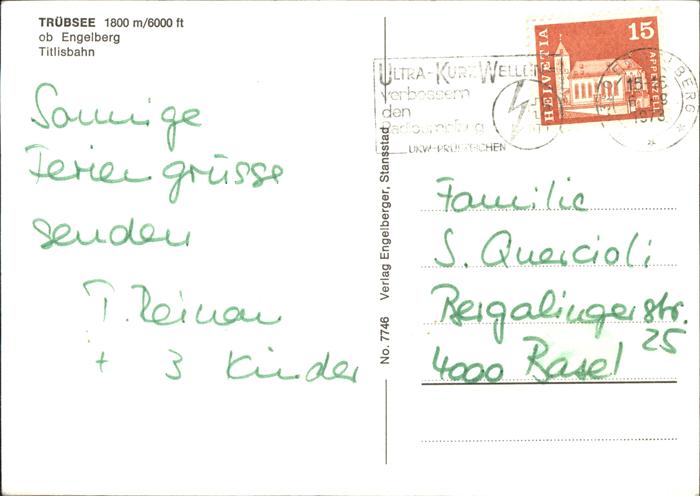 TRÜBSEE 1800 m/6000 ft
ob Engelberg
Titlisbahn
Sonnige
Feriengrüsse
senden
+ 3 Kinder
No. 7746 Verlag Engelberger, Stansstad
ULTRA-KURZ WELLEN
verbessern
den
Radioempfang
HELVETIA
15
APPENZELL
Familie
S. Quercioli
Bergalingerstr.
25
4000 Basel